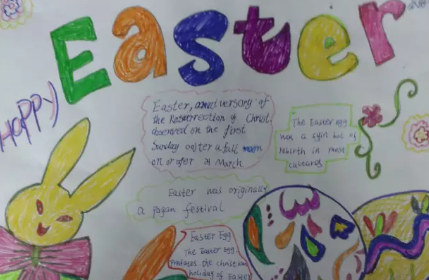 Easter
HAPPY
Easter, anniversary of
the Resurrection of Christ,
on the first
Sunday after a full moon
on or after 21 March
The Easter egg
was a symbol of
rebirth in most
cultures
Easter was originally
a pagan festival
Easter Egg
The Easter egg
the
holiday of Easter